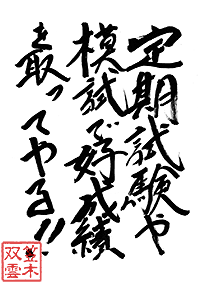 定期試験や
模試で好成績
を取ってやる!!
笠木
双雲